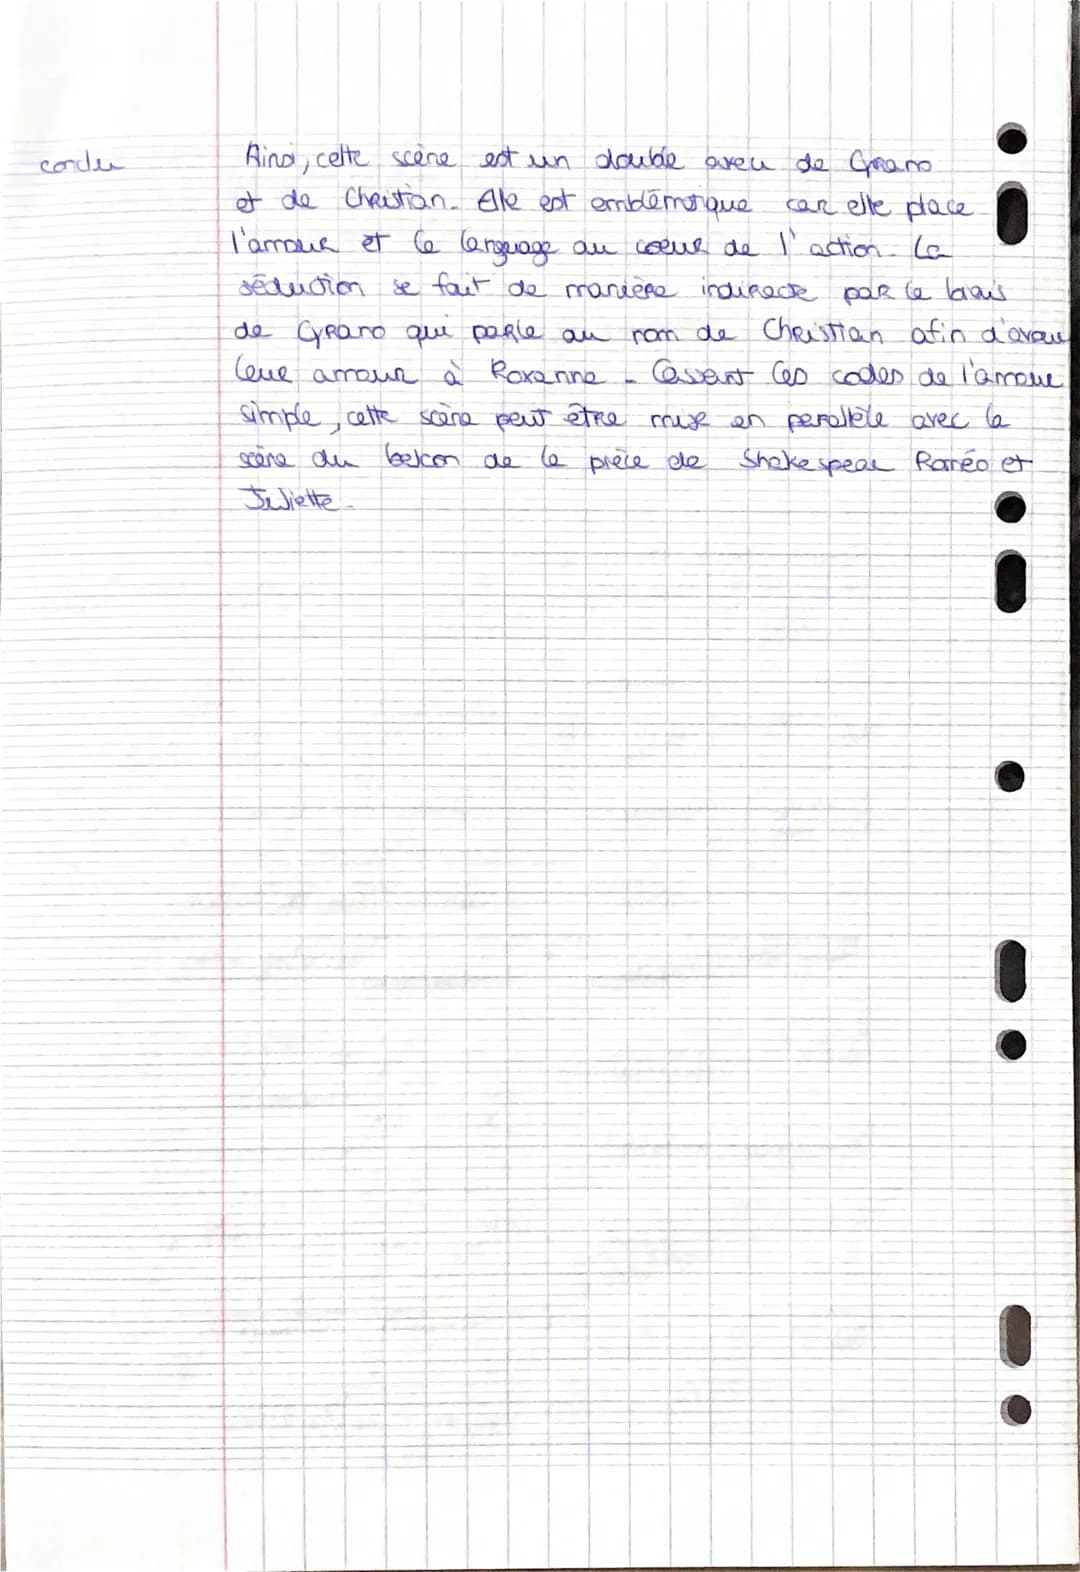 conclu
Ainsi, cette scène est un double aveu de Cyrano
et de Christian. Elle est emblématique car elle place
l'amour et le language au coeur de l'action. La
séduction se fait de manière indirecte par le biais
de Cyrano qui parle au nom de Christian afin d'avouer
leur amour à Roxanne. Cassant les codes de l'amour
simple, cette scène peut être mise en parallèle avec la
scène du balcon de la pièce de Shakespear Roméo et
Juliette.